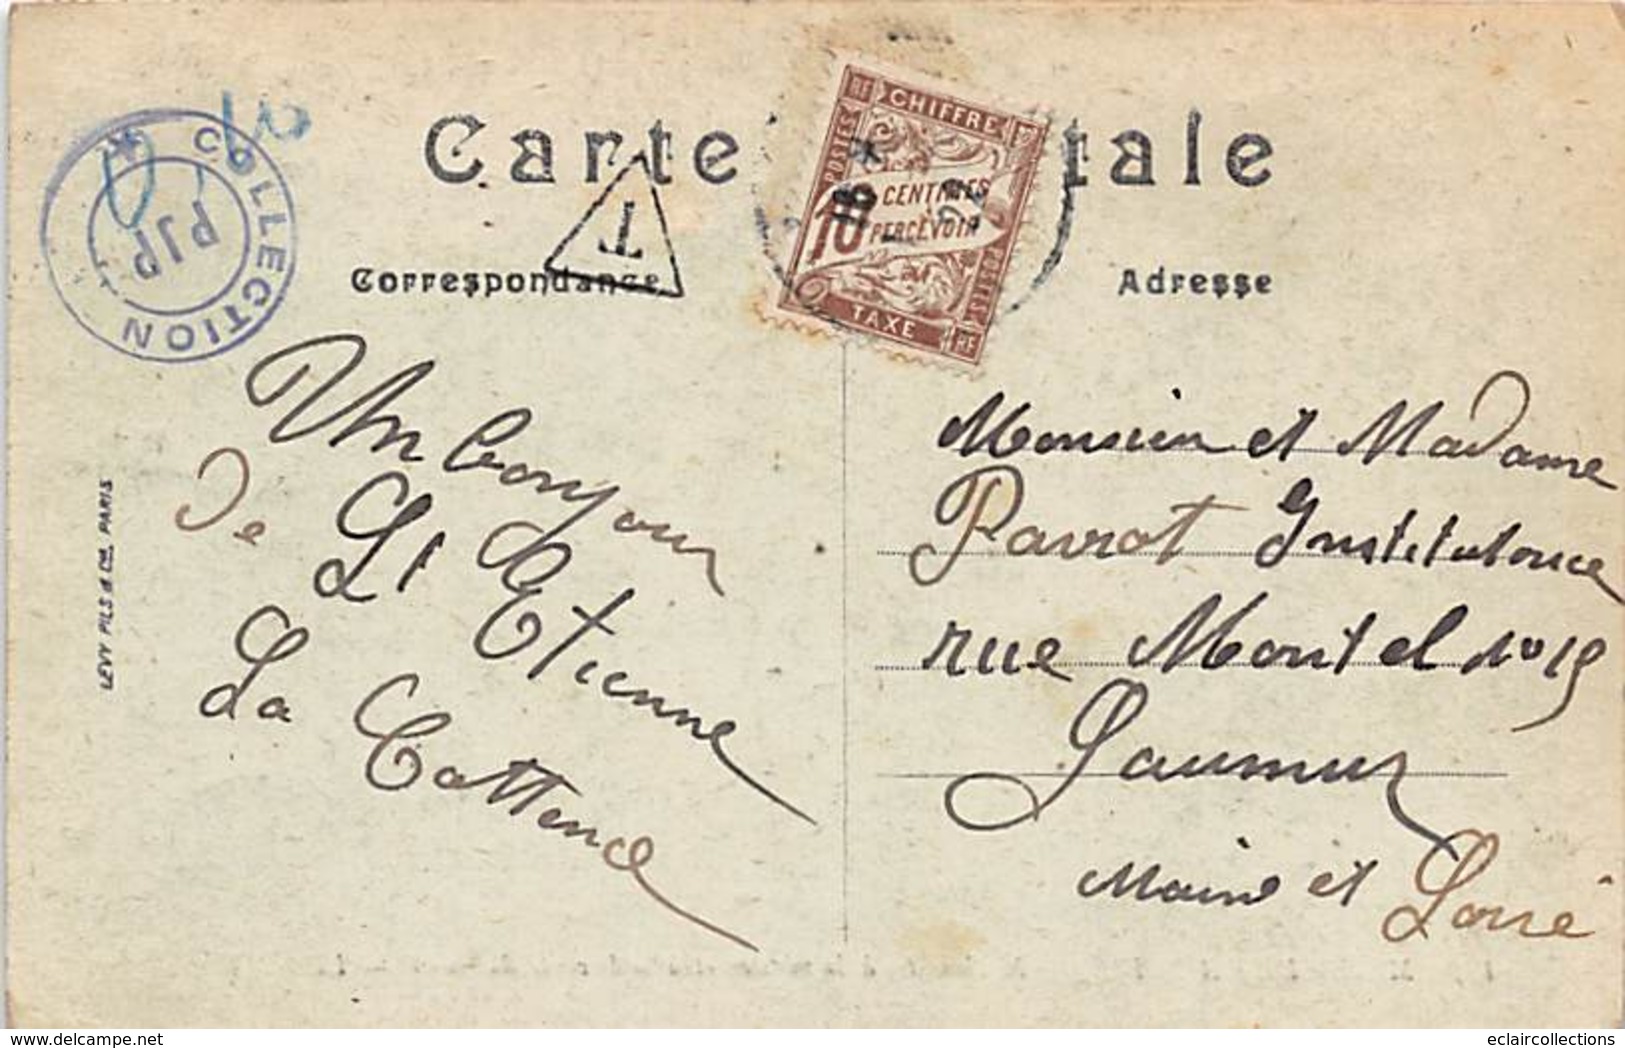 Carte tale
Correspondance
Adresse
COLLECTION
PJP
T
CHIFFRE
POSTES
10 CENTIMES
PERCEVOIR
TAXE
POSTES
RF
RF
LEVY FILS & Cie PARIS
Un bonjour
de St Etienne
La Cattend
Monsieur et Madame
Pavrot Institutouce
rue Montel no 19
Saumur
Maine et Loire
www.delcampe.net
eclaircollections